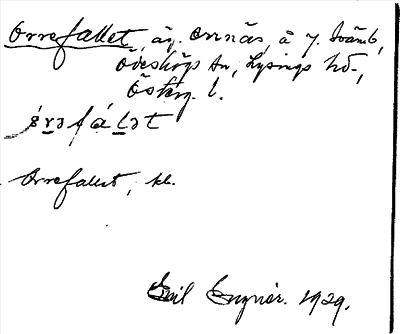 Orrefallet, äg. Onnäs, å y. Svämb,
Ödeshögs sn, Lysings hd.,
Österg. l.
órəfálət
Orrefallet, kb.
Emil 1929.